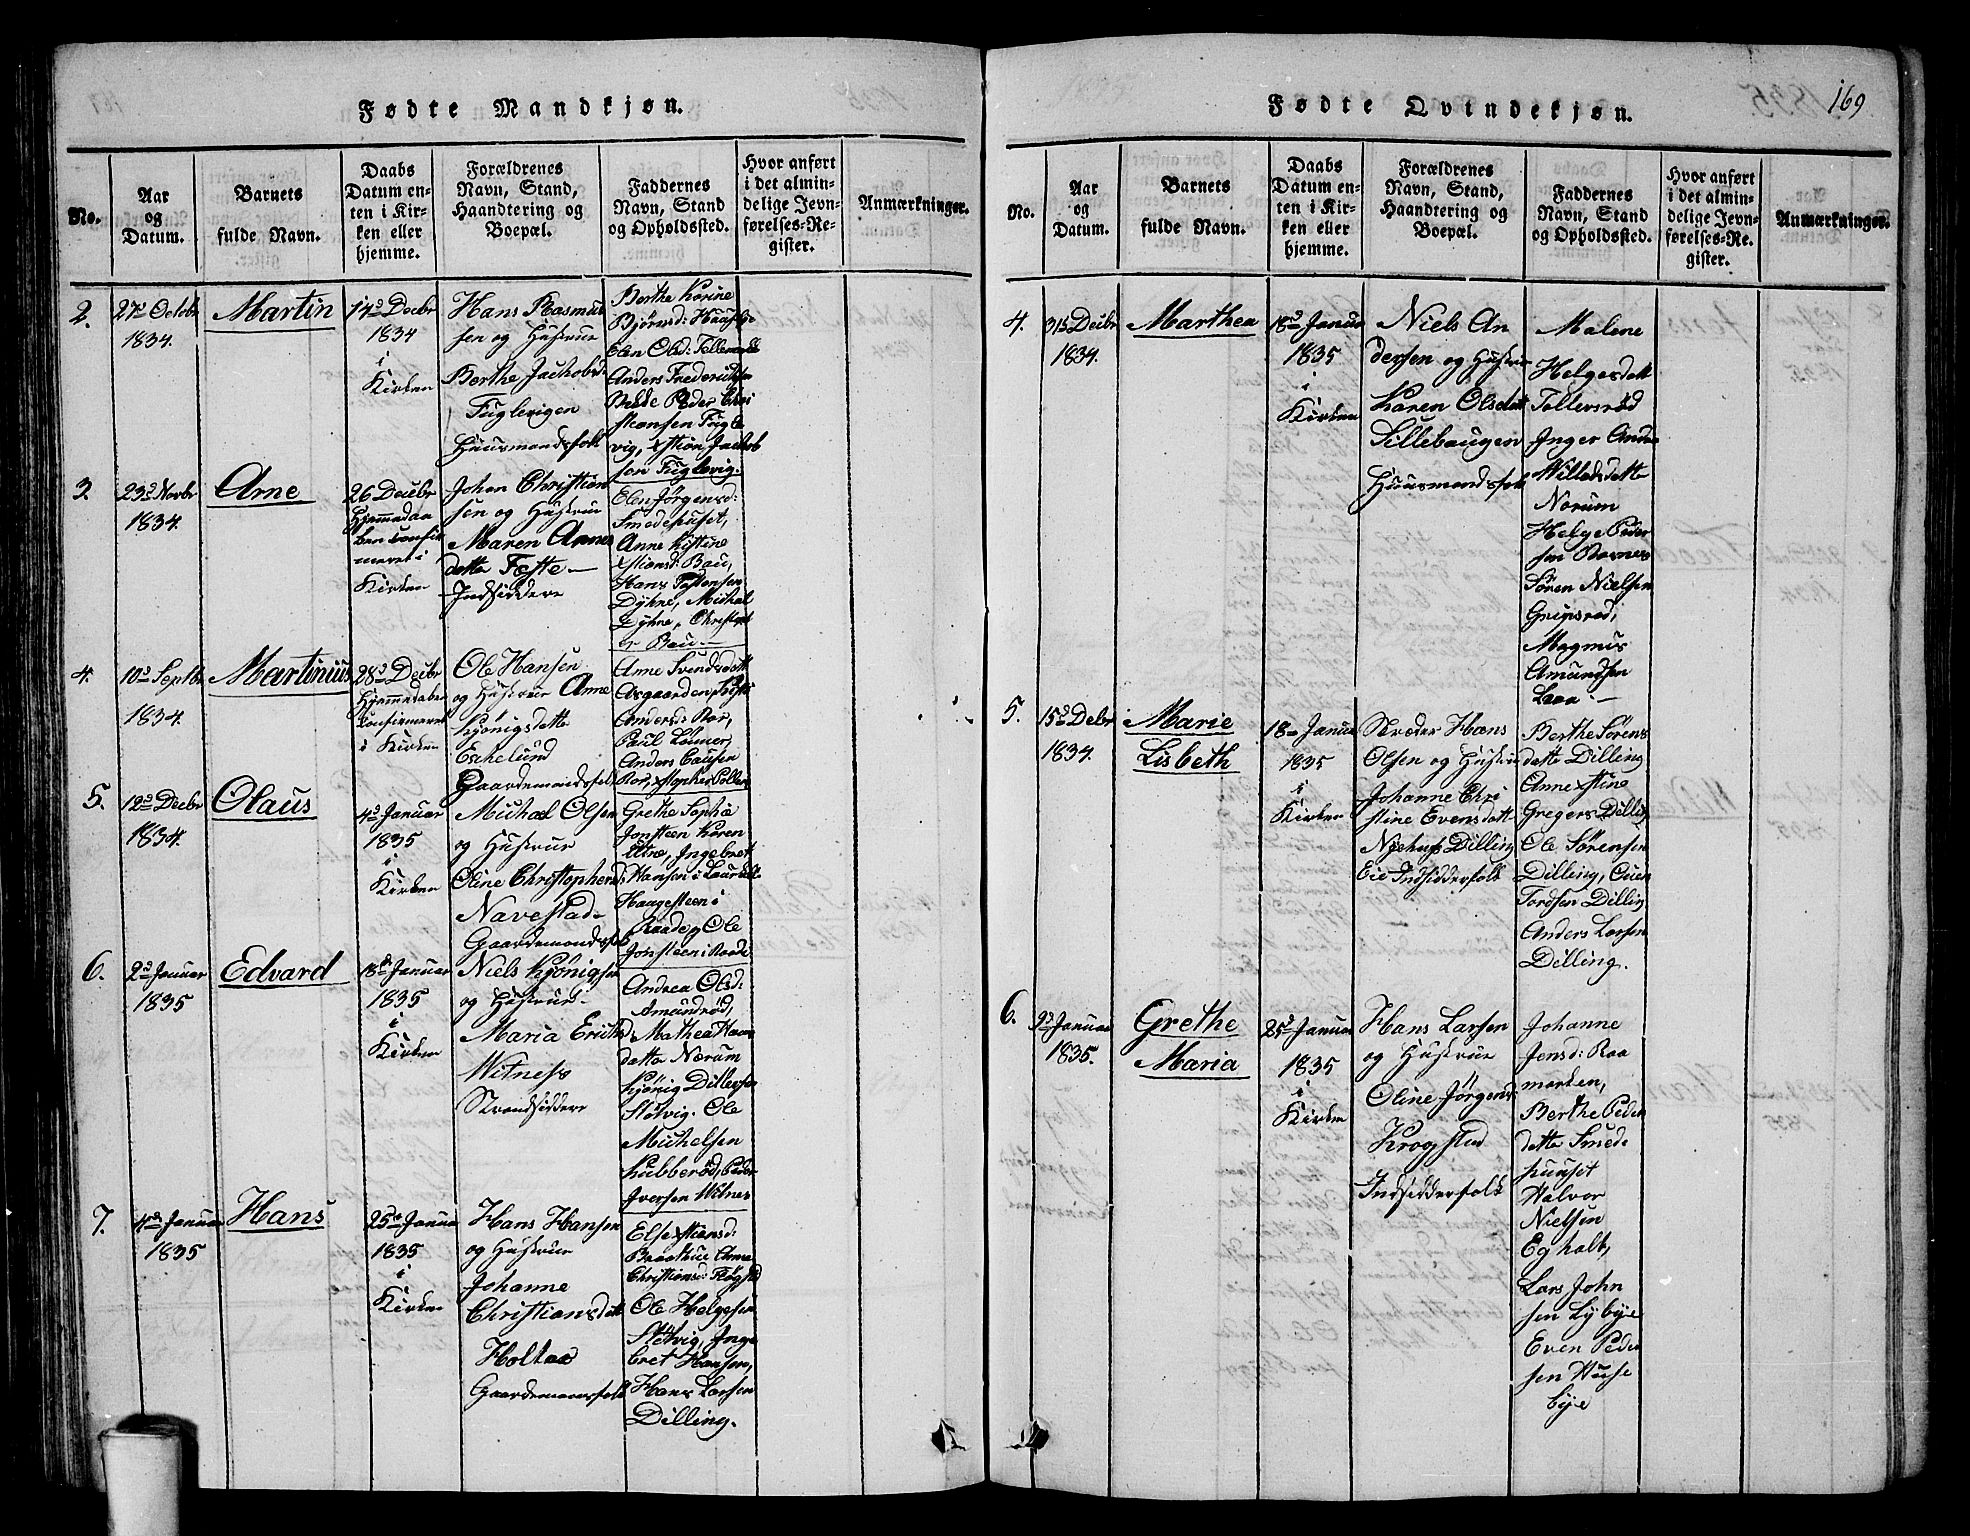 Fødte Mandkjøn.
No.
Aar
og
Datum.
Barnets
fulde Navn.
Daabs
Datum en-
ten i Kir-
ken eller
hjemme.
Forældrenes
Navn, Stand,
Haandtering og
Boepæl.
Faddernes
Navn, Stand
og Opholdssted.
Hvor anført
i det almin-
delige Jevn-
førelses-Re-
gister.
Anmærkninger.
2.
27de Octobr
1834.
Martin
14de Decbr
1834
i
Kirken
Hans Rasmus
sen og Hustrue
Berthe Jachobsd:
Fuglevigen
Huusmandsfolk
Berthe Karine
Bjørnsd: Hauge
Elen Olsd:
Anders Frederichsen
Peder Chri
stiansen Fugle
vig, Xstian Jachob
sen Fuglevig.
3.
23de Novbr
1834.
Arne
26 Decbr
Hjemmedaa
ben confir
meret i
Kirken
Johan Christian
sen og Hustrue
Maren Arnes
datte Fæste
Indsiddere
Elen Jørgensd:
Smedehuset,
Anne Kistine
Xstiansd: Bau,
Hans Torstensen
Dyhne, Michal
Dyhne, Christoph
Bau
4.
10de Septbr
1834.
Martinius
28de Decbr
Hjemmedaben
Confirmeret
i Kirken
Ole Hansen
og Hustrue Anne
Kjönigsdatte
Eschelund
Gaardemandsfolk
Anne Svendsdatt
Aasgaarden,
Andersd: Ror,
Paul
Anders Clausen
Ror, Xstopher
5.
12de Decbr
1834.
Olaus
4de Januar
1835
i
Kirken
Michael Olsen
og Hustrue
Oline Christophersd:
Navestad
Gaardemandsfolk
Grethe Sophie
Jonsteen Karen
Ingebret
Hansen i
Haugesteen i
Raade og Ole
Jonsteen i Raade
6.
2de Januar
1835
Edvard
18de Januar
1835
i
Kirken
Niels Kjönigsen
og Hustrue
Maria Erichsd:
Witness
Strandsiddere
Andrea Olsd:
Amundrød,
Mathea Hans
datte Norum
Kjönig Ditlevsen
Slötvig. Ole
Michelsen
Kubberød, Peder
Iversen Witnes
7.
4de Januar
1835
Hans
25de Januar
1835
i
Kirken
Hans Hansen
og Hustrue
Johanne
Christiansdatt
Holtaa
Gaardemansfolk
Else Xstiansd:
Anne
Christiansd:
Ole Helgesen
Slötvig, Inge
bret Hansen,
Hans Larsen
Dilling.
Fødte Qvindekjøn.
169
No.
Aar
og
Datum.
Barnets
fulde Navn.
Daabs
Datum en-
ten i Kir-
ken eller
hjemme.
Forældrenes
Navn, Stand,
Haandtering og
Boepæl.
Faddernes
Navn, Stand
og Opholdssted.
Hvor anført
i det almin-
delige Jevn-
førelses-Re-
gister.
Anmærkninger.
4.
31te Decbr
1834.
Marthea
18de Januar
1835
i
Kirken
Niels An
dersen og Hustrue
Karen Olsdatt
Sillebaugen
Huusmandsfolk
Malene
Helgesdatt
Tollevsrød
Inger Andrea
Willadsdatte
Norum
Helge Peder
sen Ravnes
Søren Nielsen
Grimsrød,
Magnus
Amundsen
Laaa
5.
15de Decbr
1834.
Marie
Lisbeth
18de Januar
1835
i
Kirken
Skræder Hans
Olsen og Hustrue
Johanne Chri
stine Evensdatt
Nyehus Dilling
Eie Indsidderfolk
Berthe Sørens
datte Dilling
Anne Xstine
Gregers Dilling
Ole Sørensen
Dilling, Even
Tordsen Dilling
Anders Larsen
Dilling.
6.
9de Januar
1835.
Grethe
Maria
25de Januar
1835
i
Kirken
Hans Larsen
og Hustrue
Oline Jörgensd:
Krogstad
Indsidderfolk
Johanne
Jensd: Raa
marken,
Berthe Peders
datte Smede
huuset
Halvor
Nielsen
Egholt,
Lars John
sen Lybye
Even Peder
sen Huuse
bye